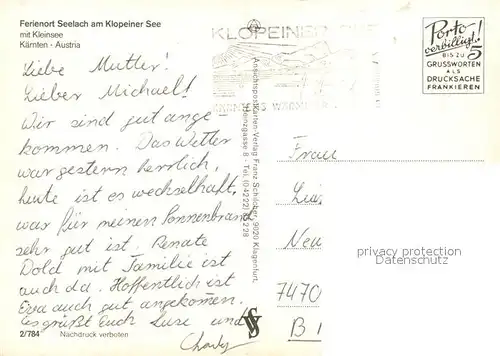 Ferienort Seelach am Klopeiner See
mit Kleinsee
Kärnten - Austria
Liebe Mutter!
Lieber Michael!
Wir sind gut ange-
kommen. Das Wetter
war gestern herrlich,
heute ist es wechselhaft,
was für meinen Sonnenbrand
sehr gut ist. Renate
Dold mit Familie ist
auch da. Hoffentlich ist
Eva auch gut angekommen.
Es grüßt Euch Luse und
Charly
2/784 Nachdruck verboten
KLOPEINER SEE
Ansichtspostkarten-Verlag Franz Schilcher, 9020 Klagenfurt,
Porto
verbilligt!
BIS ZU 5
GRUSSWORTEN
ALS
DRUCKSACHE
FRANKIEREN
Frau
Neu
privacy protection
Datenschutz
7470
B